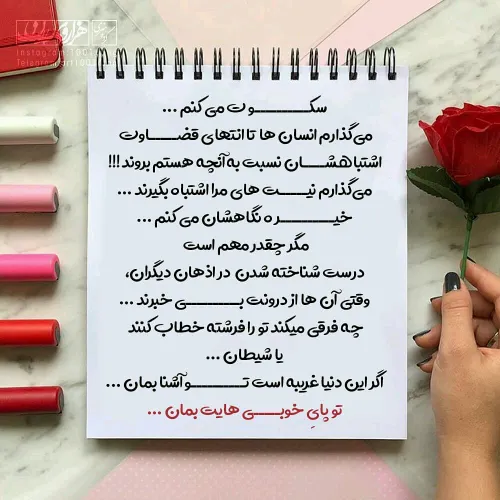 سکـــــــوت می کنم ...
می‌گذارم انسان ها تا انتهای قضـــــاوت
اشتباهشـــــان نسبت به آنچه هستم بروند!!!
می‌گذارم نیـــــت های مرا اشتباه بگیرند ...
خیـــــــره نگاهشان می کنم ...
مگر چقدر مهم است
درست شناخته شدن در اذهان دیگران،
وقتی آن ها از درونت بـــــــی خبرند ...
چه فرقی میکند تو را فرشته خطاب کنند
یا شیطان ...
اگر این دنیا غریبه است تـــــــو آشنا بمان ...
تو پایِ خوبـــــی هایت بمان ...